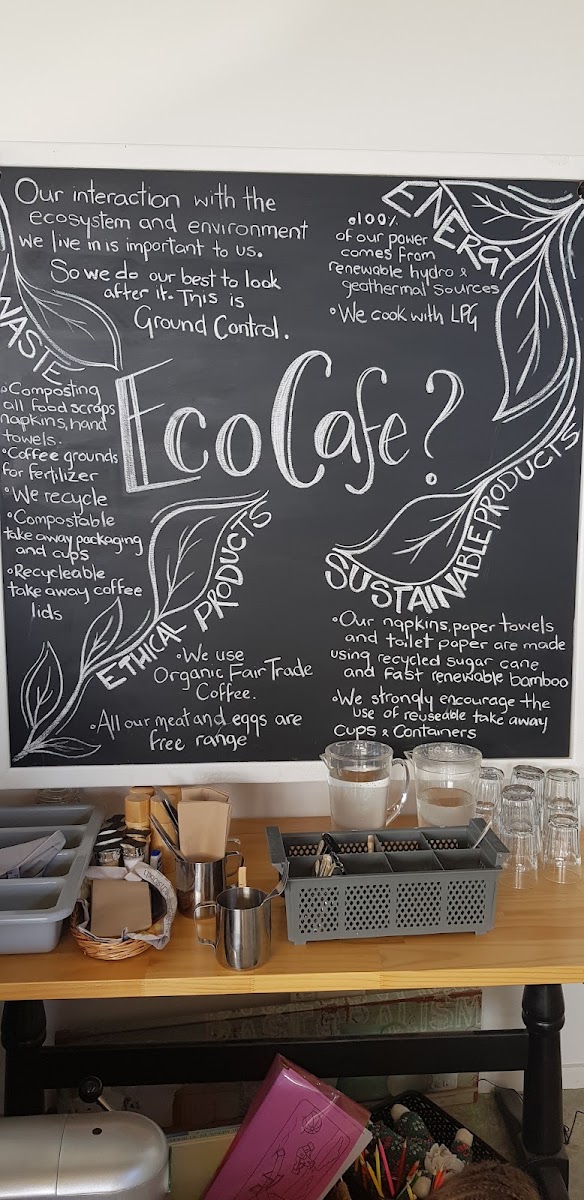 Our interaction with the
ecosystem and environment
we live in is important to us.
So we do our best to look
after it. This is
Ground Control.
ENERGY
100%
of our power
comes from
renewable hydro &
geothermal sources
We cook with LPG
WASTE
Composting
all food scraps
napkins, hand
towels.
Coffee grounds
for fertilizer
We recycle
Compostable
take away packaging
and cups
Recycleable
take away coffee
lids
EcoCafe?
ETHICAL PRODUCTS
We use
Organic Fair Trade
Coffee.
All our meat and eggs are
free range
SUSTAINABLE PRODUCTS
Our napkins, paper towels
and toilet paper are made
using recycled sugar cane
and fast renewable bamboo
We strongly encourage the
use of reuseable take away
Cups & Containers